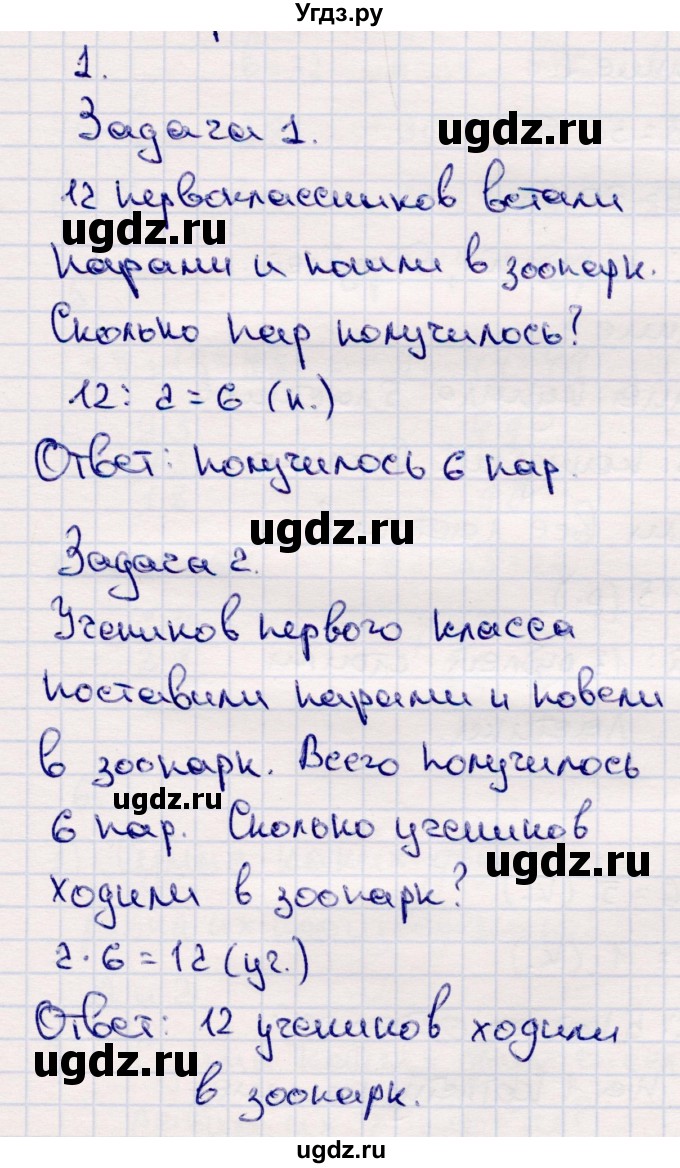 Угдз.ру
1.
Задача 1.
ugdz.ru
12 первоклассников встали
ugdz.ru
парами и пошли в зоопарк.
Сколько пар получилось?
12 : 2 = 6 (п.)
Ответ: получилось 6 пар.
ugdz.ru
Задача 2.
Учеников первого класса
поставили парами и повели
в зоопарк. Всего получилось
ugdz.ru
6 пар. Сколько учеников
ugdz.ru
ходили в зоопарк?
2 · 6 = 12 (уч.)
Ответ: 12 учеников ходили
ugdz.ru
в зоопарк.
ugdz.ru